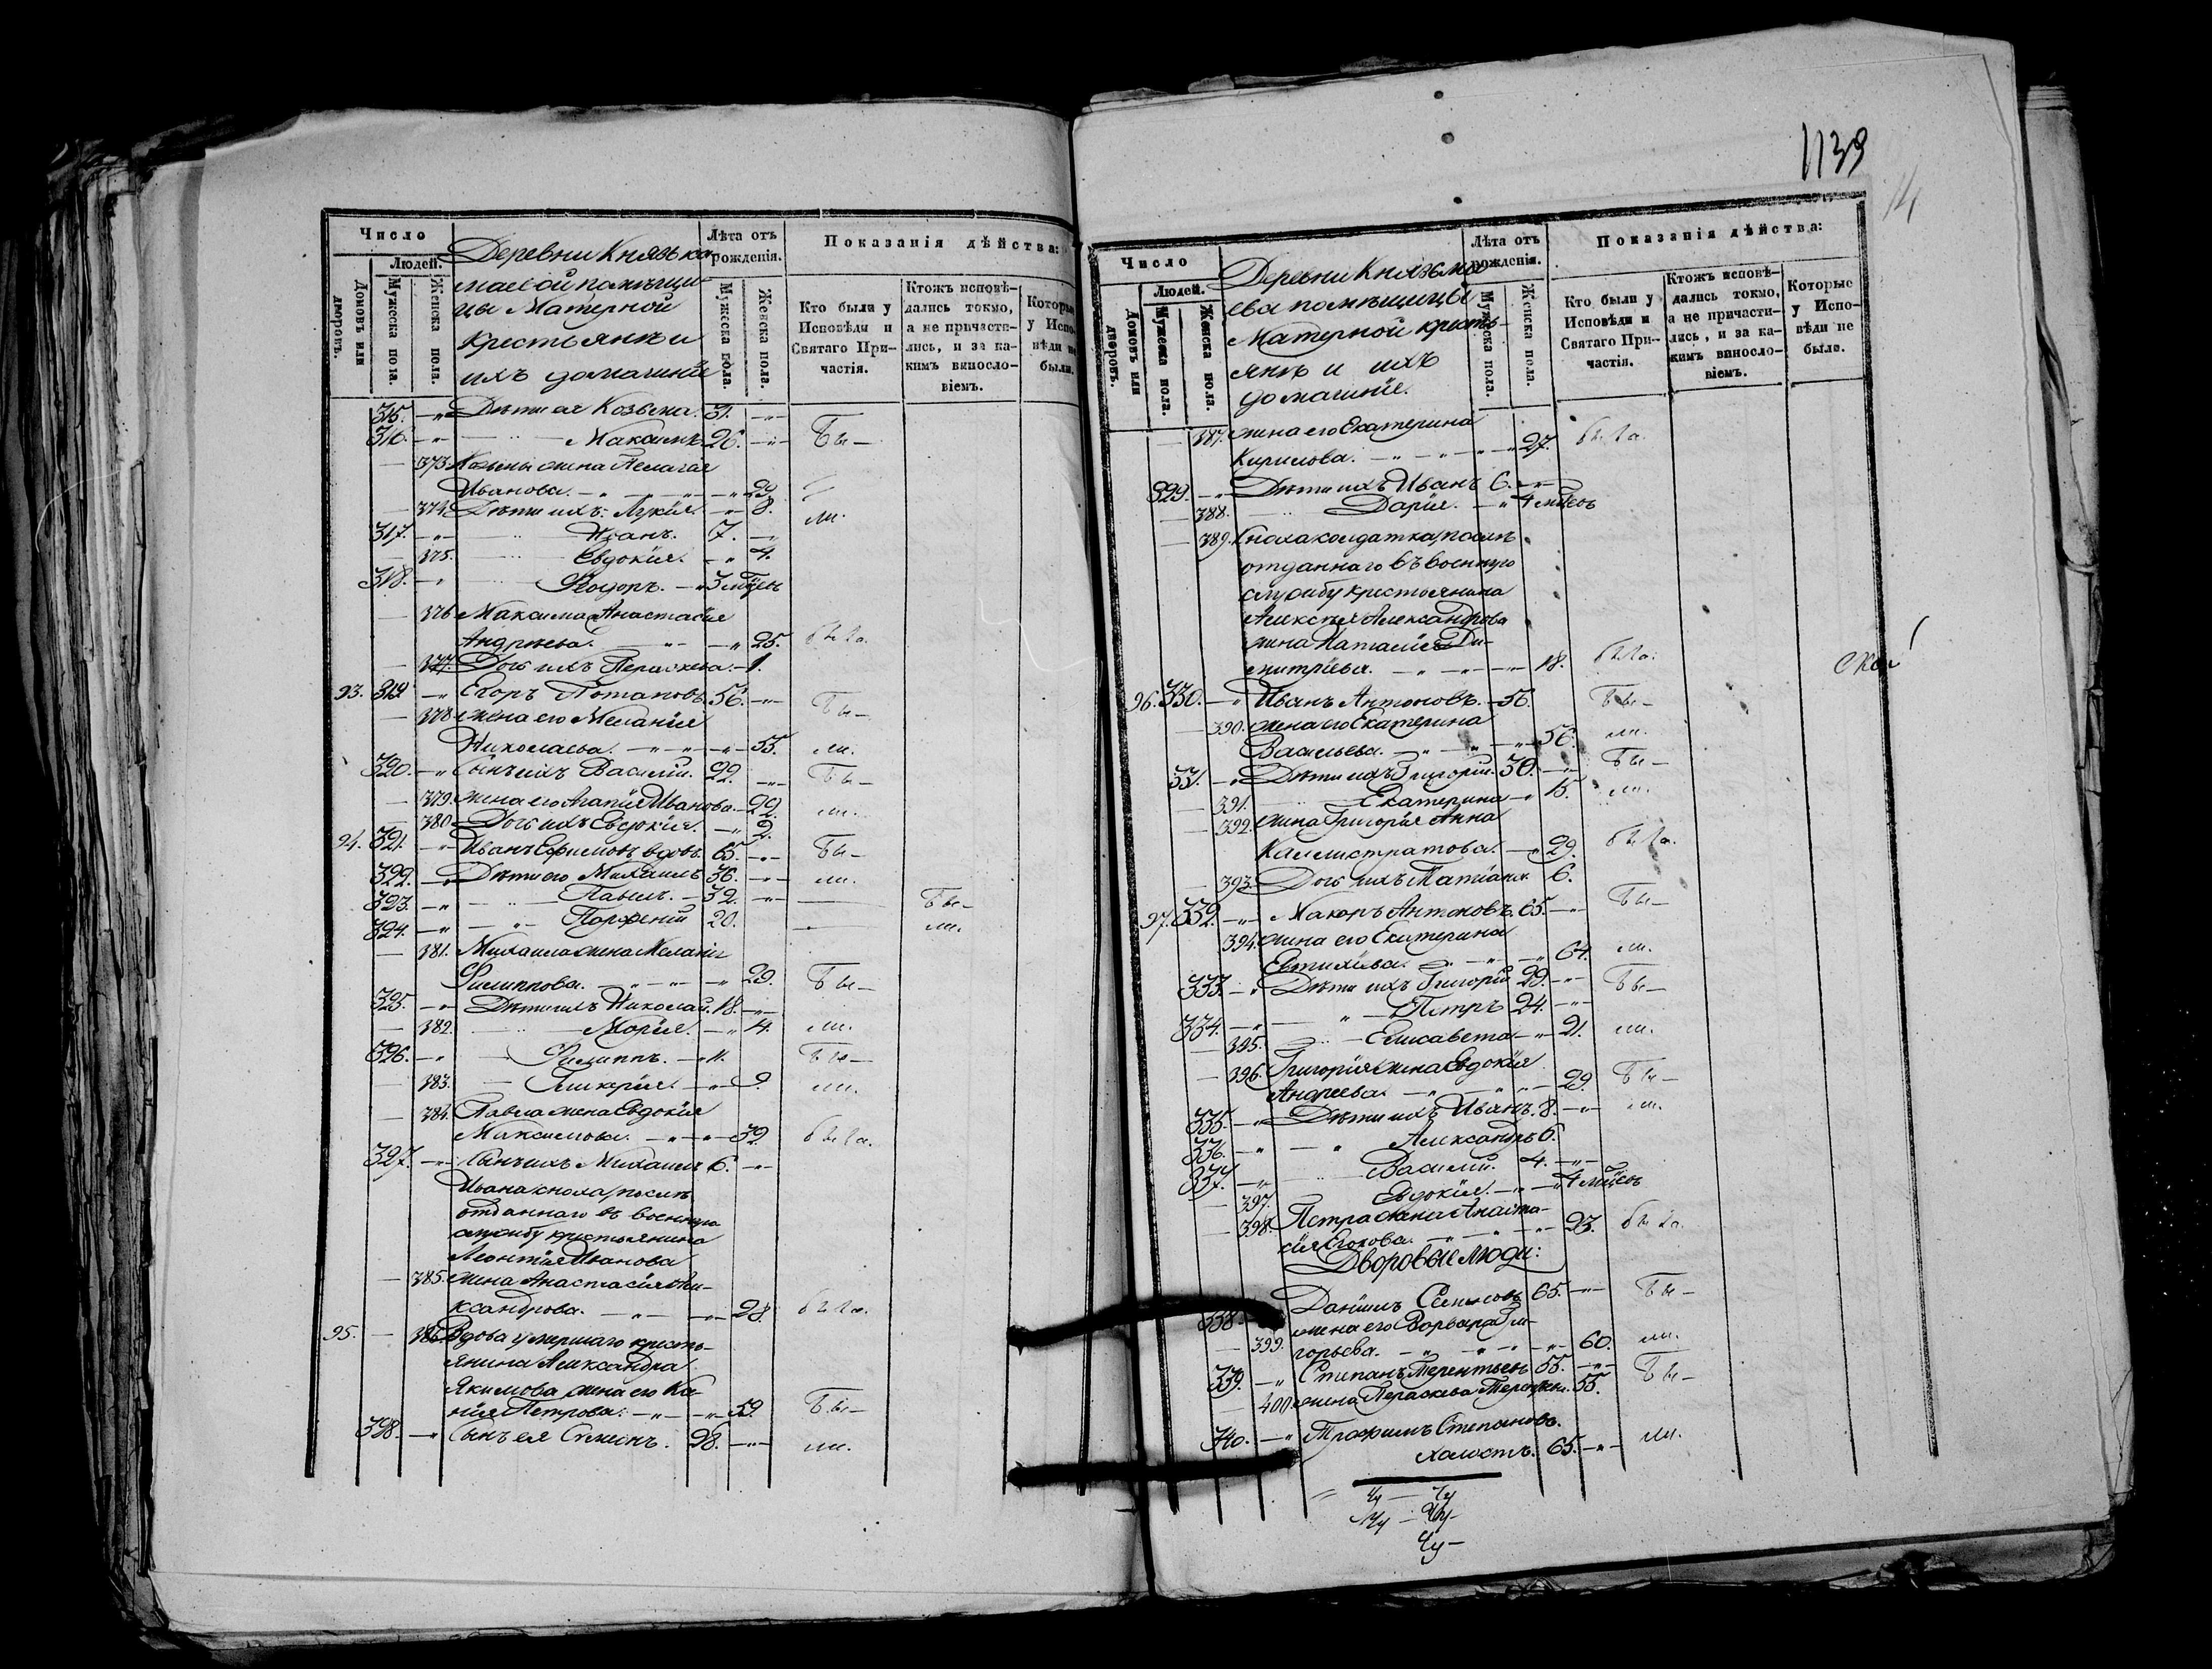 Число
Людей.
Домовъ или дворовъ.
Мужеска пола.
Женска пола.
Деревни Князька
маевой помѣщи-
цы Матерной
крестьянъ и
ихъ домашніе
Лѣта отъ рожденія.
Мужеска пола.
Женска пола.
Показанія дѣйства:
Кто были у Исповѣди и Святаго Причастія.
Ктожъ исповѣ-
дались токмо,
а не причасти-
лись, и за ка-
кимъ виносло-
віемъ.
Которые
у Испо-
вѣди не
были.
315. Дѣти ея Козьма. 31.
316. Максимъ. 26. Бы-
373. Козьмы жена Пелагія
Иванова. 29
374. Дѣти ихъ: Лукія. 8. ли.
317. Иванъ. 7.
375. Евдокія. 4.
318. Ѳедоръ. 3 мѣсяц
376 Максима Анастасія
Андреева. 25. была.
377. Дочь ихъ Параскева. 1.
93. 319 Егоръ Потаповъ. 56. Бы-
378 жена его Меланія
Николаева. 55. ли.
320. Сынъ ихъ Василій. 22. Бы-
379. жена его Агапія Иванова. 22. ли.
380 Дочь ихъ Евдокія. 2.
94. 321. Иванъ Ефимовъ вдовъ. 65. Бы-
322. Дѣти его Михаилъ 36. ли.
323. Павелъ. 32. Бы-
324. Порфеній 20. ли.
381. Михаила жена Меланія
Филиппова. 29. Бы-
325. Дѣти ихъ Николай. 18.
382. Марія. 4. ли.
326. Филиппъ. 11. Бы-
383. Гликерія. 9. ли.
384. Павла жена Евдокія
Максимова. 32. была.
327. Сынъ ихъ Михаилъ 6.
Ивана сноха, послѣ
отданнаго въ военную
службу крестьянина
Леонтія Иванова
385. жена Анастасія Але-
ксандрова. 28. была.
95. 386. Вдова умершаго кресть-
янина Александра
Якимова жена его Ка-
нія Петрова. 59. Бы-
328. Сынъ ея Симеонъ. 28. ли.
1139
Число
Людей.
Домовъ или дворовъ.
Мужеска пола.
Женска пола.
Деревни Князька
ева помѣщицы
Матерной кресть-
янъ и ихъ
домашніе.
Лѣта отъ рожденія.
Мужеска пола.
Женска пола.
Показанія дѣйства:
Кто были у
Исповѣди и
Святаго При-
частія.
Ктожъ исповѣ-
дались токмо,
а не причасти-
лись, и за ка-
кимъ винносло-
віемъ.
Которые
у Испо-
вѣди не
были.
387. жена его Екатерина
Кирилова. 27. была.
329. Дѣти ихъ Иванъ 6.
388. Дарія. 4 мѣсяц
389. Сноха солдатка, послѣ
отданнаго въ военную
службу крестьянина
Алексѣя Александрова
жена Наталія Ди-
митріева. 18. была.
96. 330. Иванъ Антоновъ. 56. Бы-
390. жена его Екатерина
Васильева. 56. ли.
331. Дѣти ихъ Григорій. 30. Бы-
391. Екатерина 15. ли.
392. жена Григорія Анна
Каллистратова. 29. была.
393. Дочь ихъ Татіана. 6.
97. 332. Макаръ Антоновъ. 65. Бы-
394. жена его Екатерина
Евтихіева. 64. ли.
333. Дѣти ихъ Григорій 29. Бы-
334. Петръ 24.
395. Елисавета 21. ли.
396. Григорія жена Евдокія
Андреева. 29. Бы-
335. Дѣти ихъ Иванъ. 8. ли.
336. Александръ 6.
337. Василій. 4.
397. Евдокія. 4 мѣсяц
398. Петра жена Анаста-
сія Егорова. 23. была.
Дворовые люди:
338. Даніилъ Семеновъ 65. Бы-
399. жена его Варвара Гри-
горьева. 60. ли.
339. Степанъ Терентьевъ 55. Бы-
400. жена Параскева 55.
340. Трофимъ Степановъ
холостъ. 65. ли.